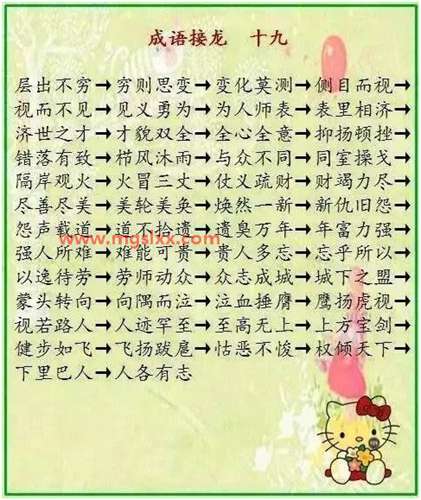 成语接龙 十九
层出不穷→穷则思变→变化莫测→侧目而视→
视而不见→见义勇为→为人师表→表里相济→
济世之才→才貌双全→全心全意→抑扬顿挫→
错落有致→栉风沐雨→与众不同→同室操戈→
隔岸观火→火冒三丈→仗义疏财→财竭力尽→
尽善尽美→美轮美奂→焕然一新→新仇旧怨→
怨声载道→道不拾遗→遗臭万年→年富力强→
www.mgslxx.com
强人所难→难能可贵→贵人多忘→忘乎所以→
以逸待劳→劳师动众→众志成城→城下之盟→
蒙头转向→向隅而泣→泣血捶膺→鹰扬虎视→
视若路人→人迹罕至→至高无上→上方宝剑→
健步如飞→飞扬跋扈→怙恶不悛→权倾天下→
下里巴人→人各有志